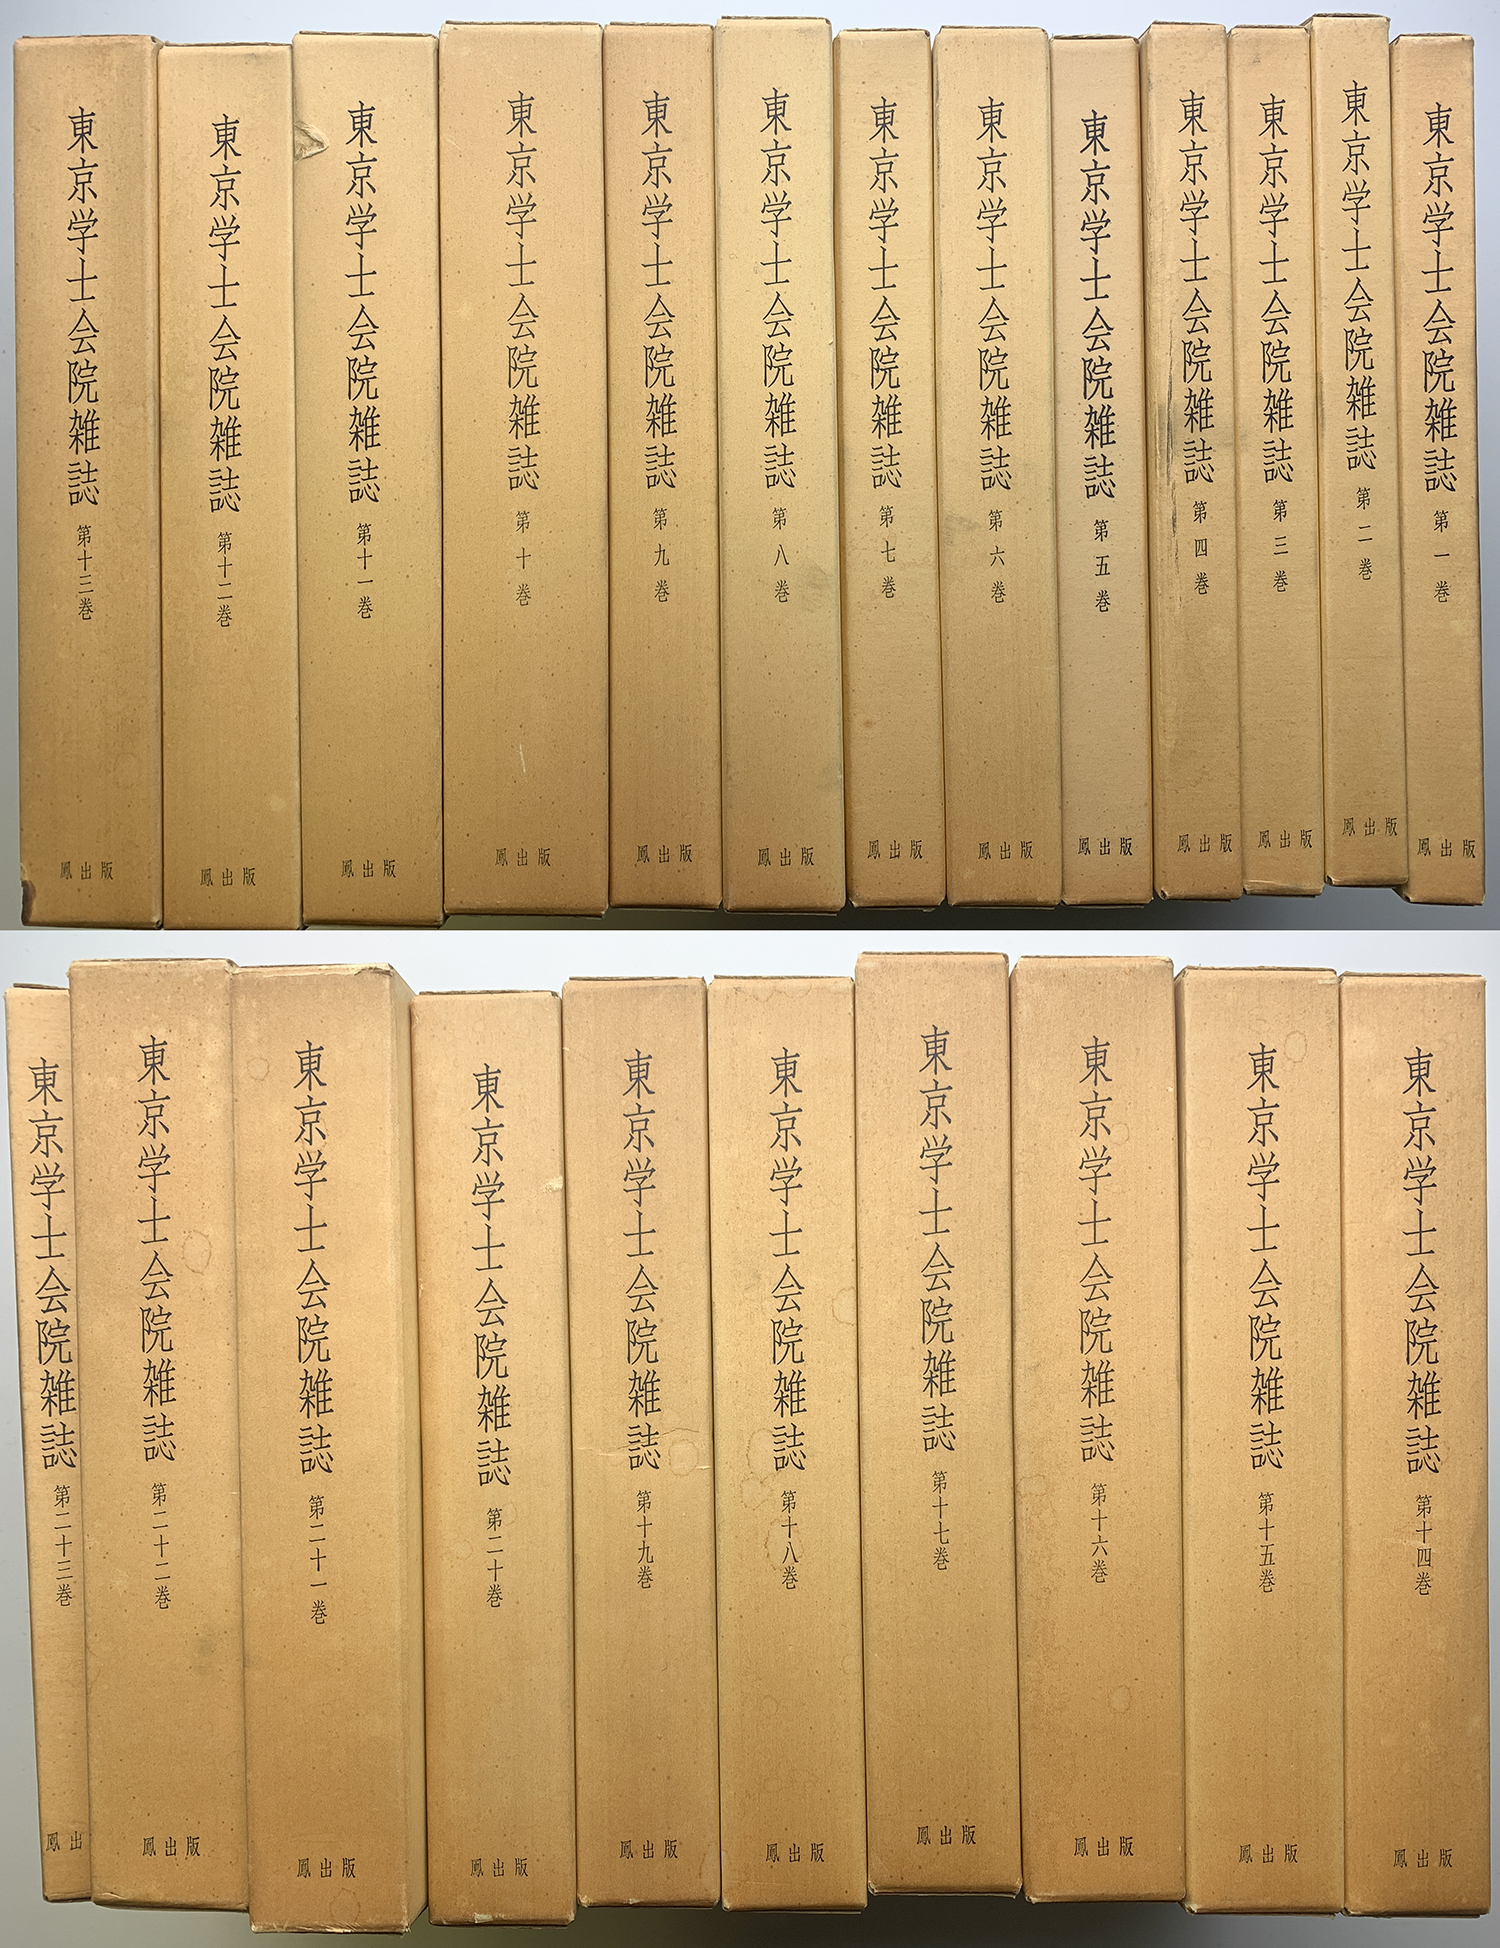 東京学士会院雑誌 第一巻 鳳出版
東京学士会院雑誌 第二巻 鳳出版
東京学士会院雑誌 第三巻 鳳出版
東京学士会院雑誌 第四巻 鳳出版
東京学士会院雑誌 第五巻 鳳出版
東京学士会院雑誌 第六巻 鳳出版
東京学士会院雑誌 第七巻 鳳出版
東京学士会院雑誌 第八巻 鳳出版
東京学士会院雑誌 第九巻 鳳出版
東京学士会院雑誌 第十巻 鳳出版
東京学士会院雑誌 第十一巻 鳳出版
東京学士会院雑誌 第十二巻 鳳出版
東京学士会院雑誌 第十三巻 鳳出版
東京学士会院雑誌 第十四巻 鳳出版
東京学士会院雑誌 第十五巻 鳳出版
東京学士会院雑誌 第十六巻 鳳出版
東京学士会院雑誌 第十七巻 鳳出版
東京学士会院雑誌 第十八巻 鳳出版
東京学士会院雑誌 第十九巻 鳳出版
東京学士会院雑誌 第二十巻 鳳出版
東京学士会院雑誌 第二十一巻 鳳出版
東京学士会院雑誌 第二十二巻 鳳出版
東京学士会院雑誌 第二十三巻 鳳出